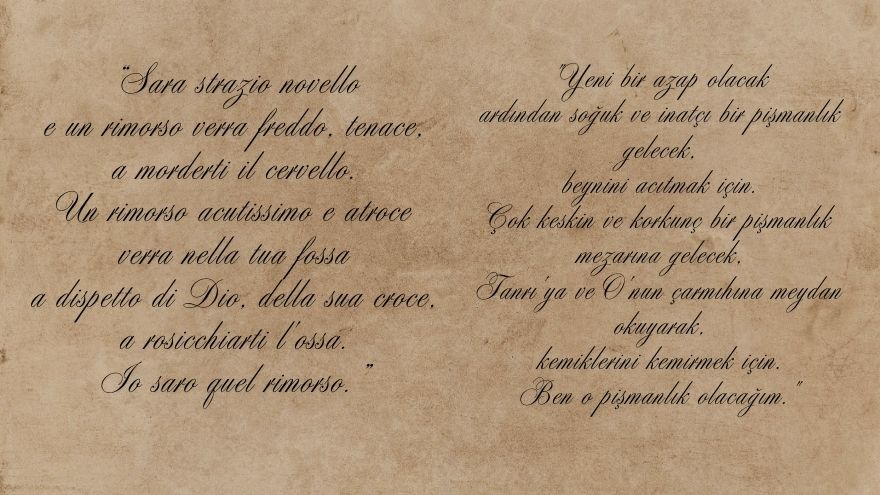 "Sara strazio novello
e un rimorso verra freddo, tenace,
a morderti il cervello.
Un rimorso acutissimo e atroce
verra nella tua fossa
a dispetto di Dio, della sua croce,
a rosicchiarti l'ossa.
Io saro quel rimorso. "
"Yeni bir azap olacak
ardından soğuk ve inatçı bir pişmanlık
gelecek,
beynini acıtmak için.
Çok keskin ve korkunç bir pişmanlık
mezarına gelecek,
Tanrı'ya ve O'nun çarmıhına meydan
okuyarak,
kemiklerini kemirmek için.
Ben o pişmanlık olacağım."